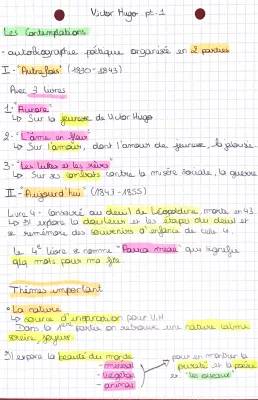 Victor Hugo pt-1
Les Contemplations
- autobiographie poétique organisée en 2 parties
I - "Autrefois" (1830-1843)
Avec 3 livres
1- "Aurore"
↳ Sur la jeunesse de Victor Hugo
2- "L'âme en fleur"
↳ Sur l'amour, dont l'amour de jeunesse, la jalousie
3- "Les luttes et les rêves"
↳ Sur ses combats contre la misère sociale, la guerre
II - "Aujourd'hui" (1843-1855)
Livre 4 - consacré au deuil de Léopoldine, morte en 43
↳ Il explore la douleur et les étapes du deuil et
se remémore des souvenirs d'enfance de celle-ci.
Le 4e livre se nomme "Pauca meae" qui signifie
qlq mots pour ma fille
Thèmes important
- La nature
↳ source d'inspiration pour V.H
Dans la 1ère partie on retrouve une nature calme
sereine, joyeuse
Il explore la beauté du monde
- minéral
- végétal
- animal
pour en montrer la
pureté et la poésie